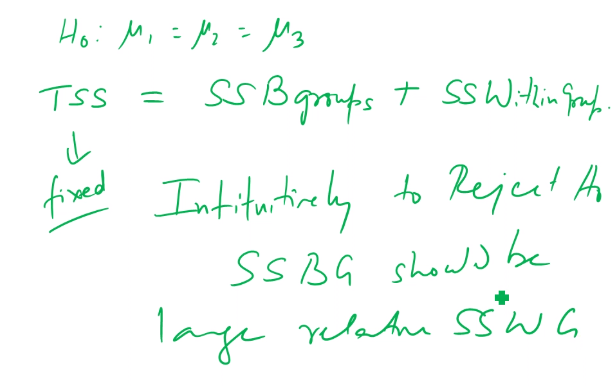 H₀: μ₁ = μ₂ = μ₃
TSS = SSBgroups + SSWithin Group.
fixed Intituitively to Reject H₀
SSBG should be
large relative SSWG